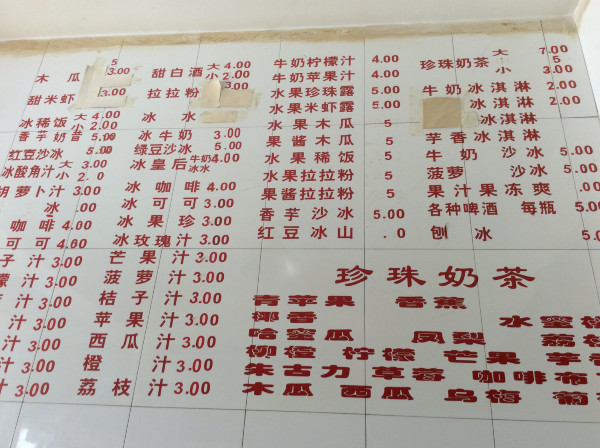 木瓜 5 3.00
甜米虾 3.00
冰稀饭 大 4.00 小 2.00
香芋奶昔 5.00
红豆沙冰 5.00
冰酸角汁 大 3.00 小 2.0
胡萝卜汁 3.00
冰 .00
咖啡 4.00
可可 4.00
子汁 3.00
檬汁 3.00
汁 3.00
汁 3.00
汁 3.00
汁 3.00
汁 3.00
甜白酒 大 4.00 小 2.00
拉拉粉 3.00
冰水
冰牛奶 3.00
绿豆沙冰 5.00
冰皇后 牛奶 冰水 4.00
冰咖啡 4.00
冰可可 3.00
冰果珍 3.00
冰玫瑰汁 3.00
芒果汁 3.00
菠萝汁 3.00
桔子汁 3.00
苹果汁 3.00
西瓜汁 3.00
橙汁 3.00
荔枝汁 3.00
牛奶柠檬汁 4.00
牛奶苹果汁 4.00
水果珍珠露 5.00
水果米虾露 5.00
水果木瓜 5
果酱木瓜 5
水果稀饭 5
水果拉拉粉 5
果酱拉拉粉 5
香芋沙冰 5.00
红豆冰山 .0
珍珠奶茶 大 7.00 小 5 3.00
牛奶冰淇淋 2.00
冰淇淋 2.00
芋香冰淇淋
牛奶沙冰 5.00
菠萝沙冰 5.00
果汁果冻爽 .00
各种啤酒 每瓶 5.00
刨冰 5.00
珍珠奶茶
青苹果 香蕉
椰香 水蜜
哈蜜瓜 凤梨 荔
柳橙 柠檬 芒果 芋
朱古力 草莓 咖啡布
木瓜 西瓜 乌梅 葡